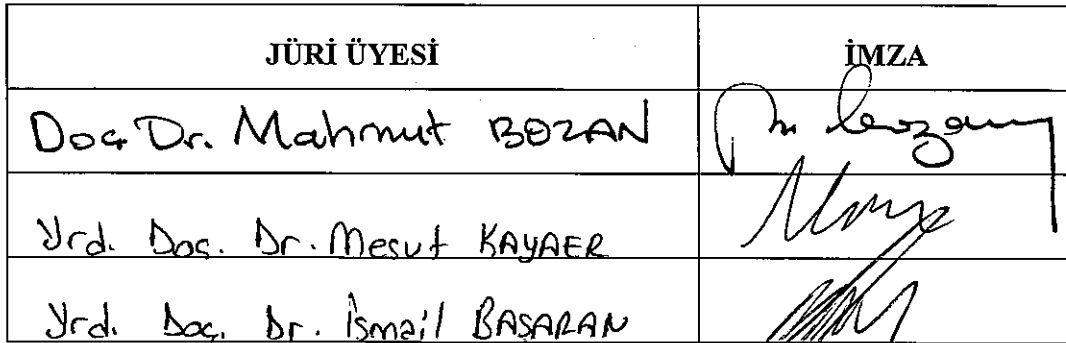 JÜRİ ÜYESİ İMZA
Doç. Dr. Mahmut BOZAN M. Bozan
Yrd. Doç. Dr. Mesut KAYAER
Yrd. Doç. Dr. İsmail BAŞARAN